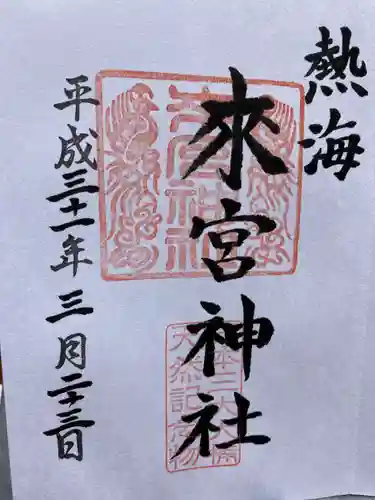 熱海
來宮神社
平成三十一年三月二十三日
來宮神社
天然記念物